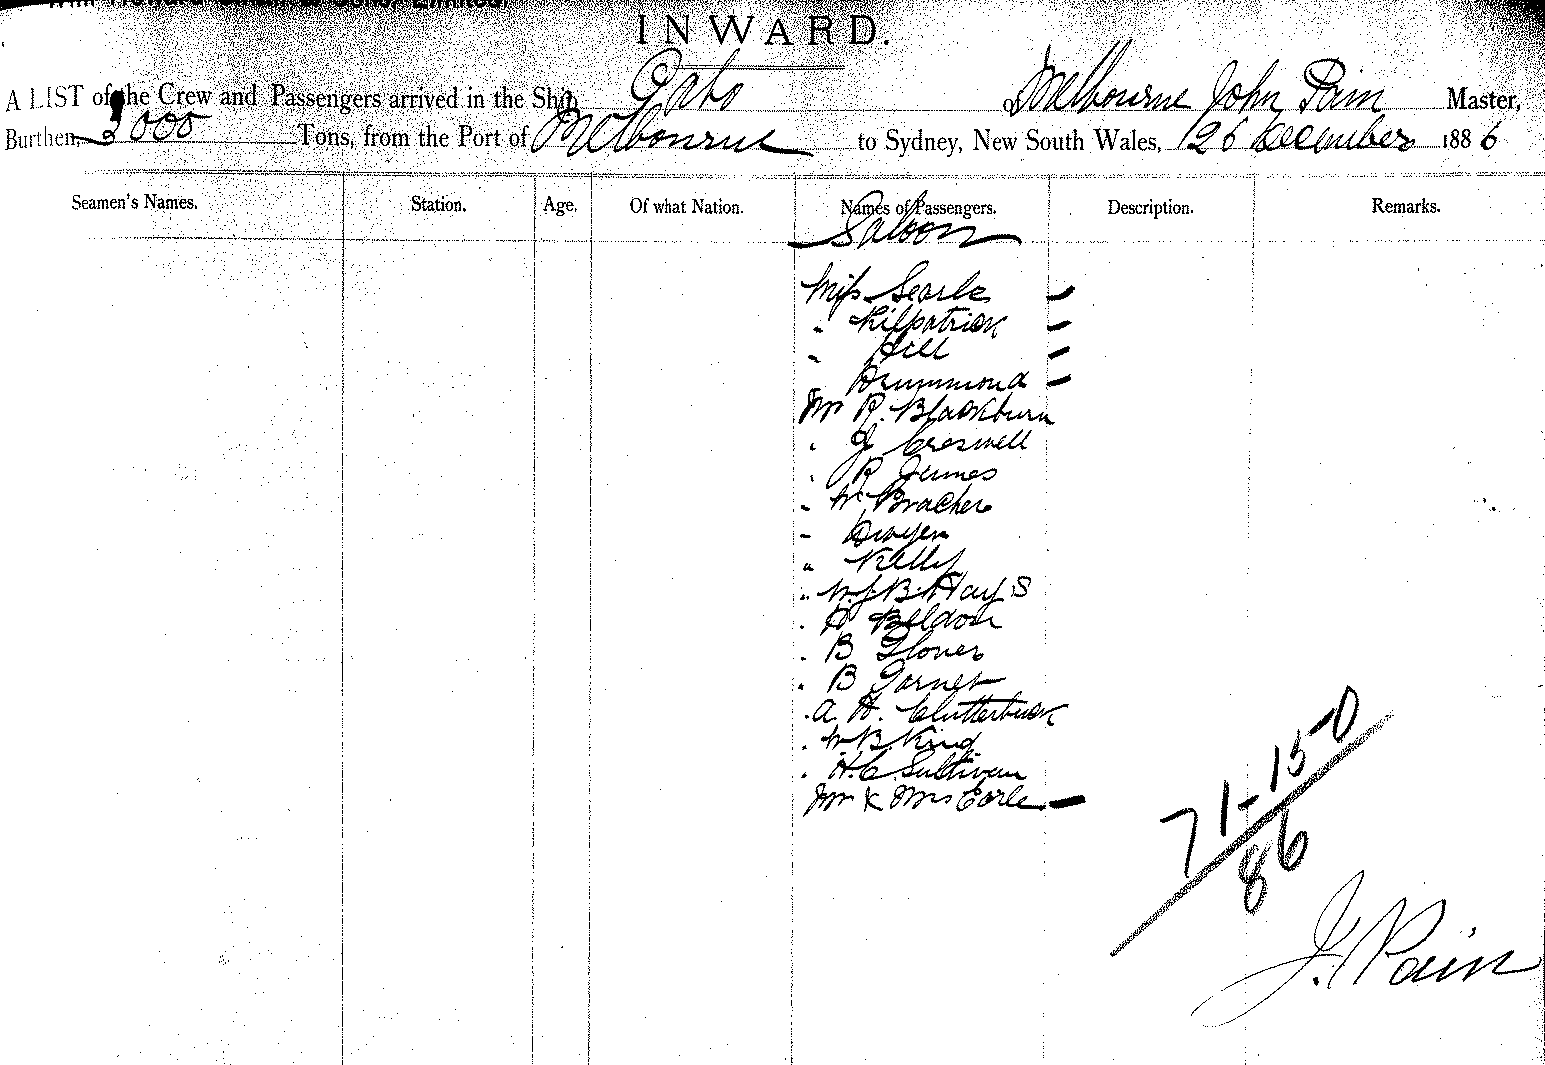 Wm Howard Smith & Sons, Limited
INWARD.
A LIST of the Crew and Passengers arrived in the Ship Gabo of Melbourne John Pain Master,
Burthen, 2000 Tons, from the Port of Melbourne to Sydney, New South Wales, 26 December 1886
Seamen's Names. Station. Age. Of what Nation. Names of Passengers. Description. Remarks.
Saloon
Miss Searle
" Kilpatrick
" Hill
" Drummond
Mr R. Blackburn
" J Creswell
" R James
" W. Bracher
" Dwyer
" Kelly
" W. J. B. Hays
" H Beldon
" B Glover
" B Garner
" A. H. Clutterbuck
" W B King
" H. C. Sullivan
Mr & Mrs Earle
71-150
86
J. Pain